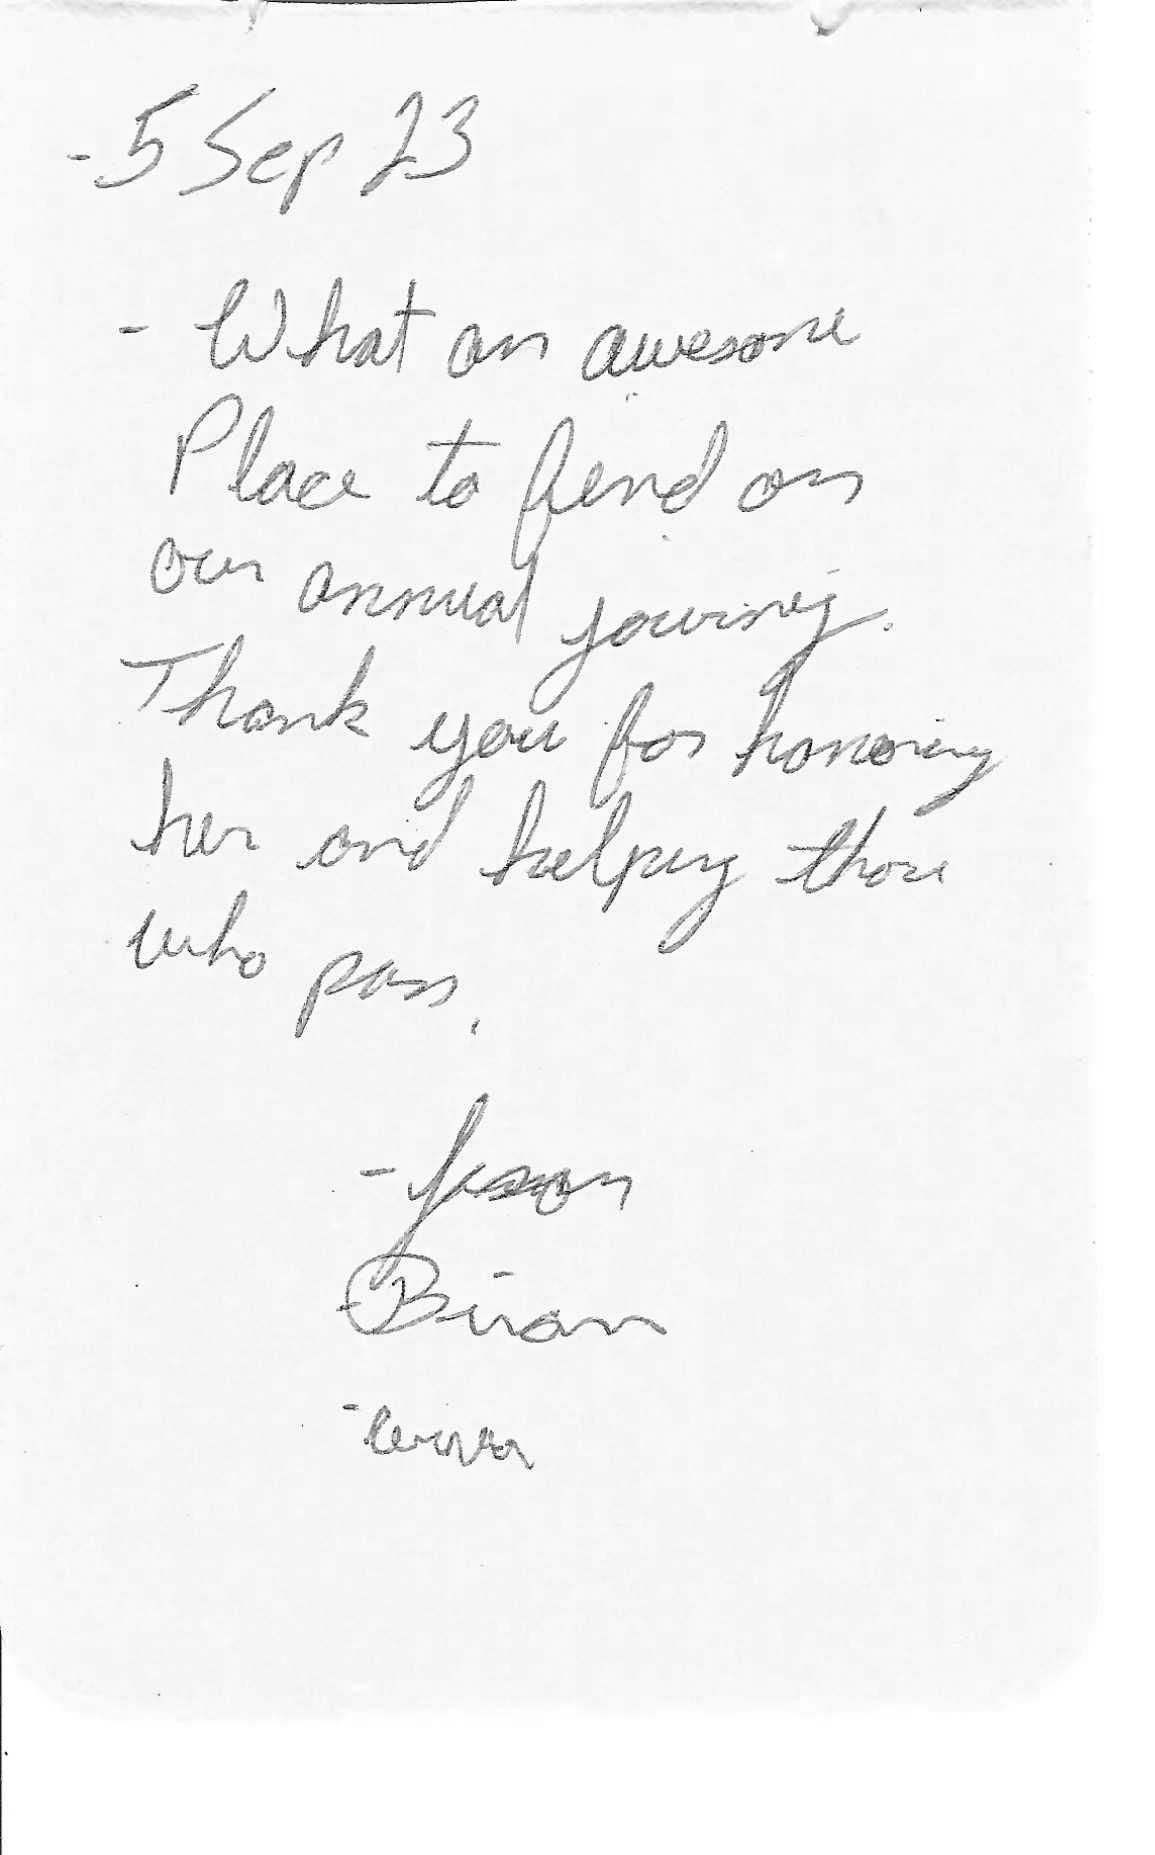 - 5 Sep 23
- What an awesome
Place to fiend on
our annual journey.
Thank you for honoring
her and helping those
who pass.
- Jason
- Brian